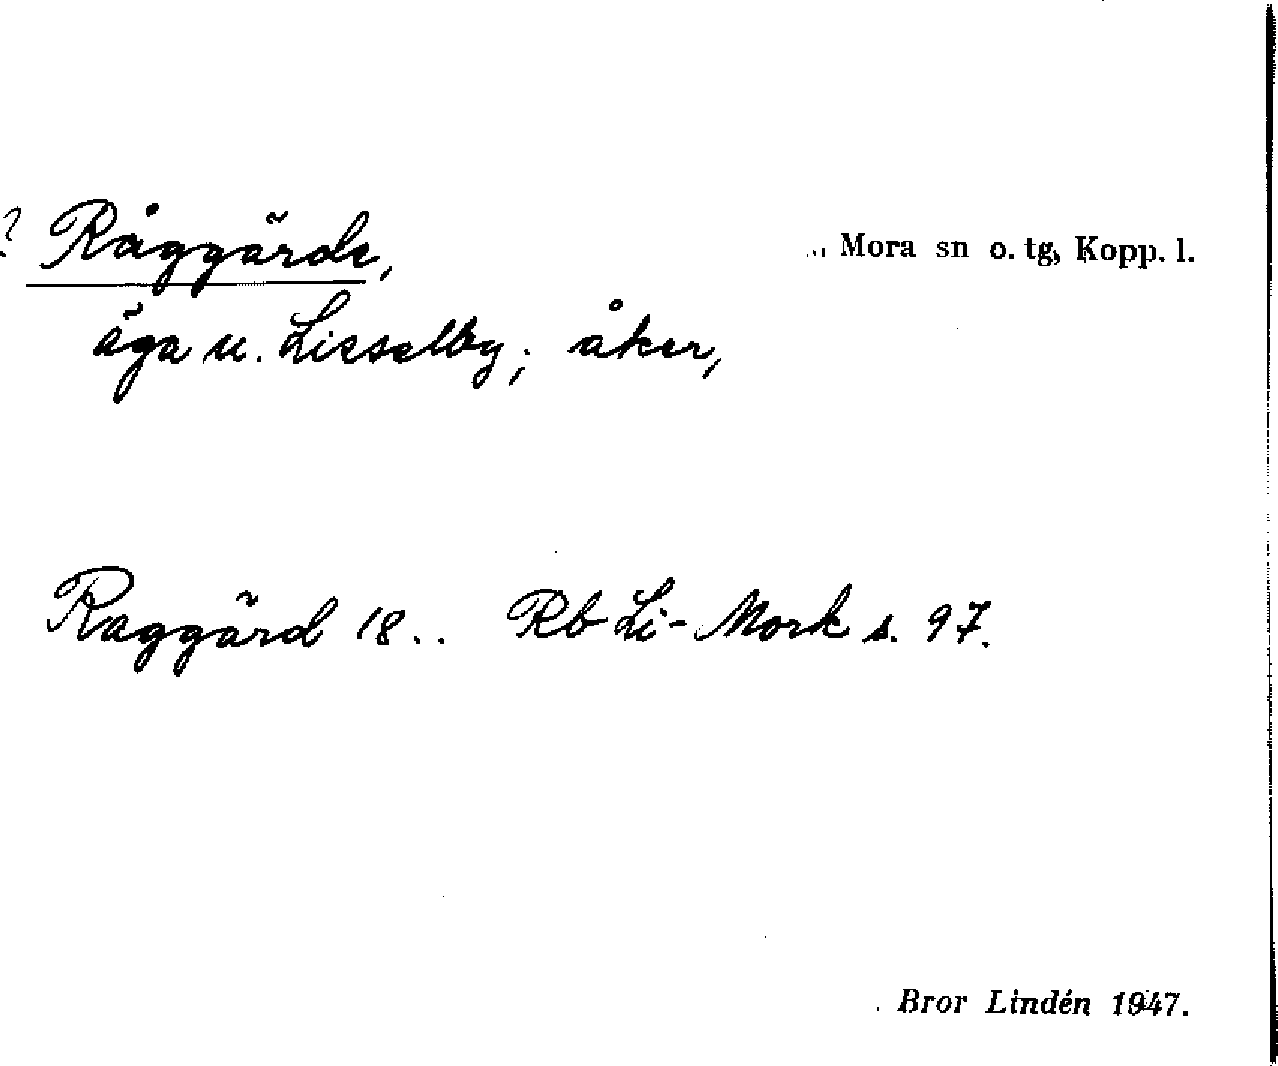 ? Råggärde,
Mora sn o. tg, Kopp. l.
äga u. Lisselby; åker,
Raggärd 18.. Rb Li-Mork s. 97.
Bror Lindén 1947.